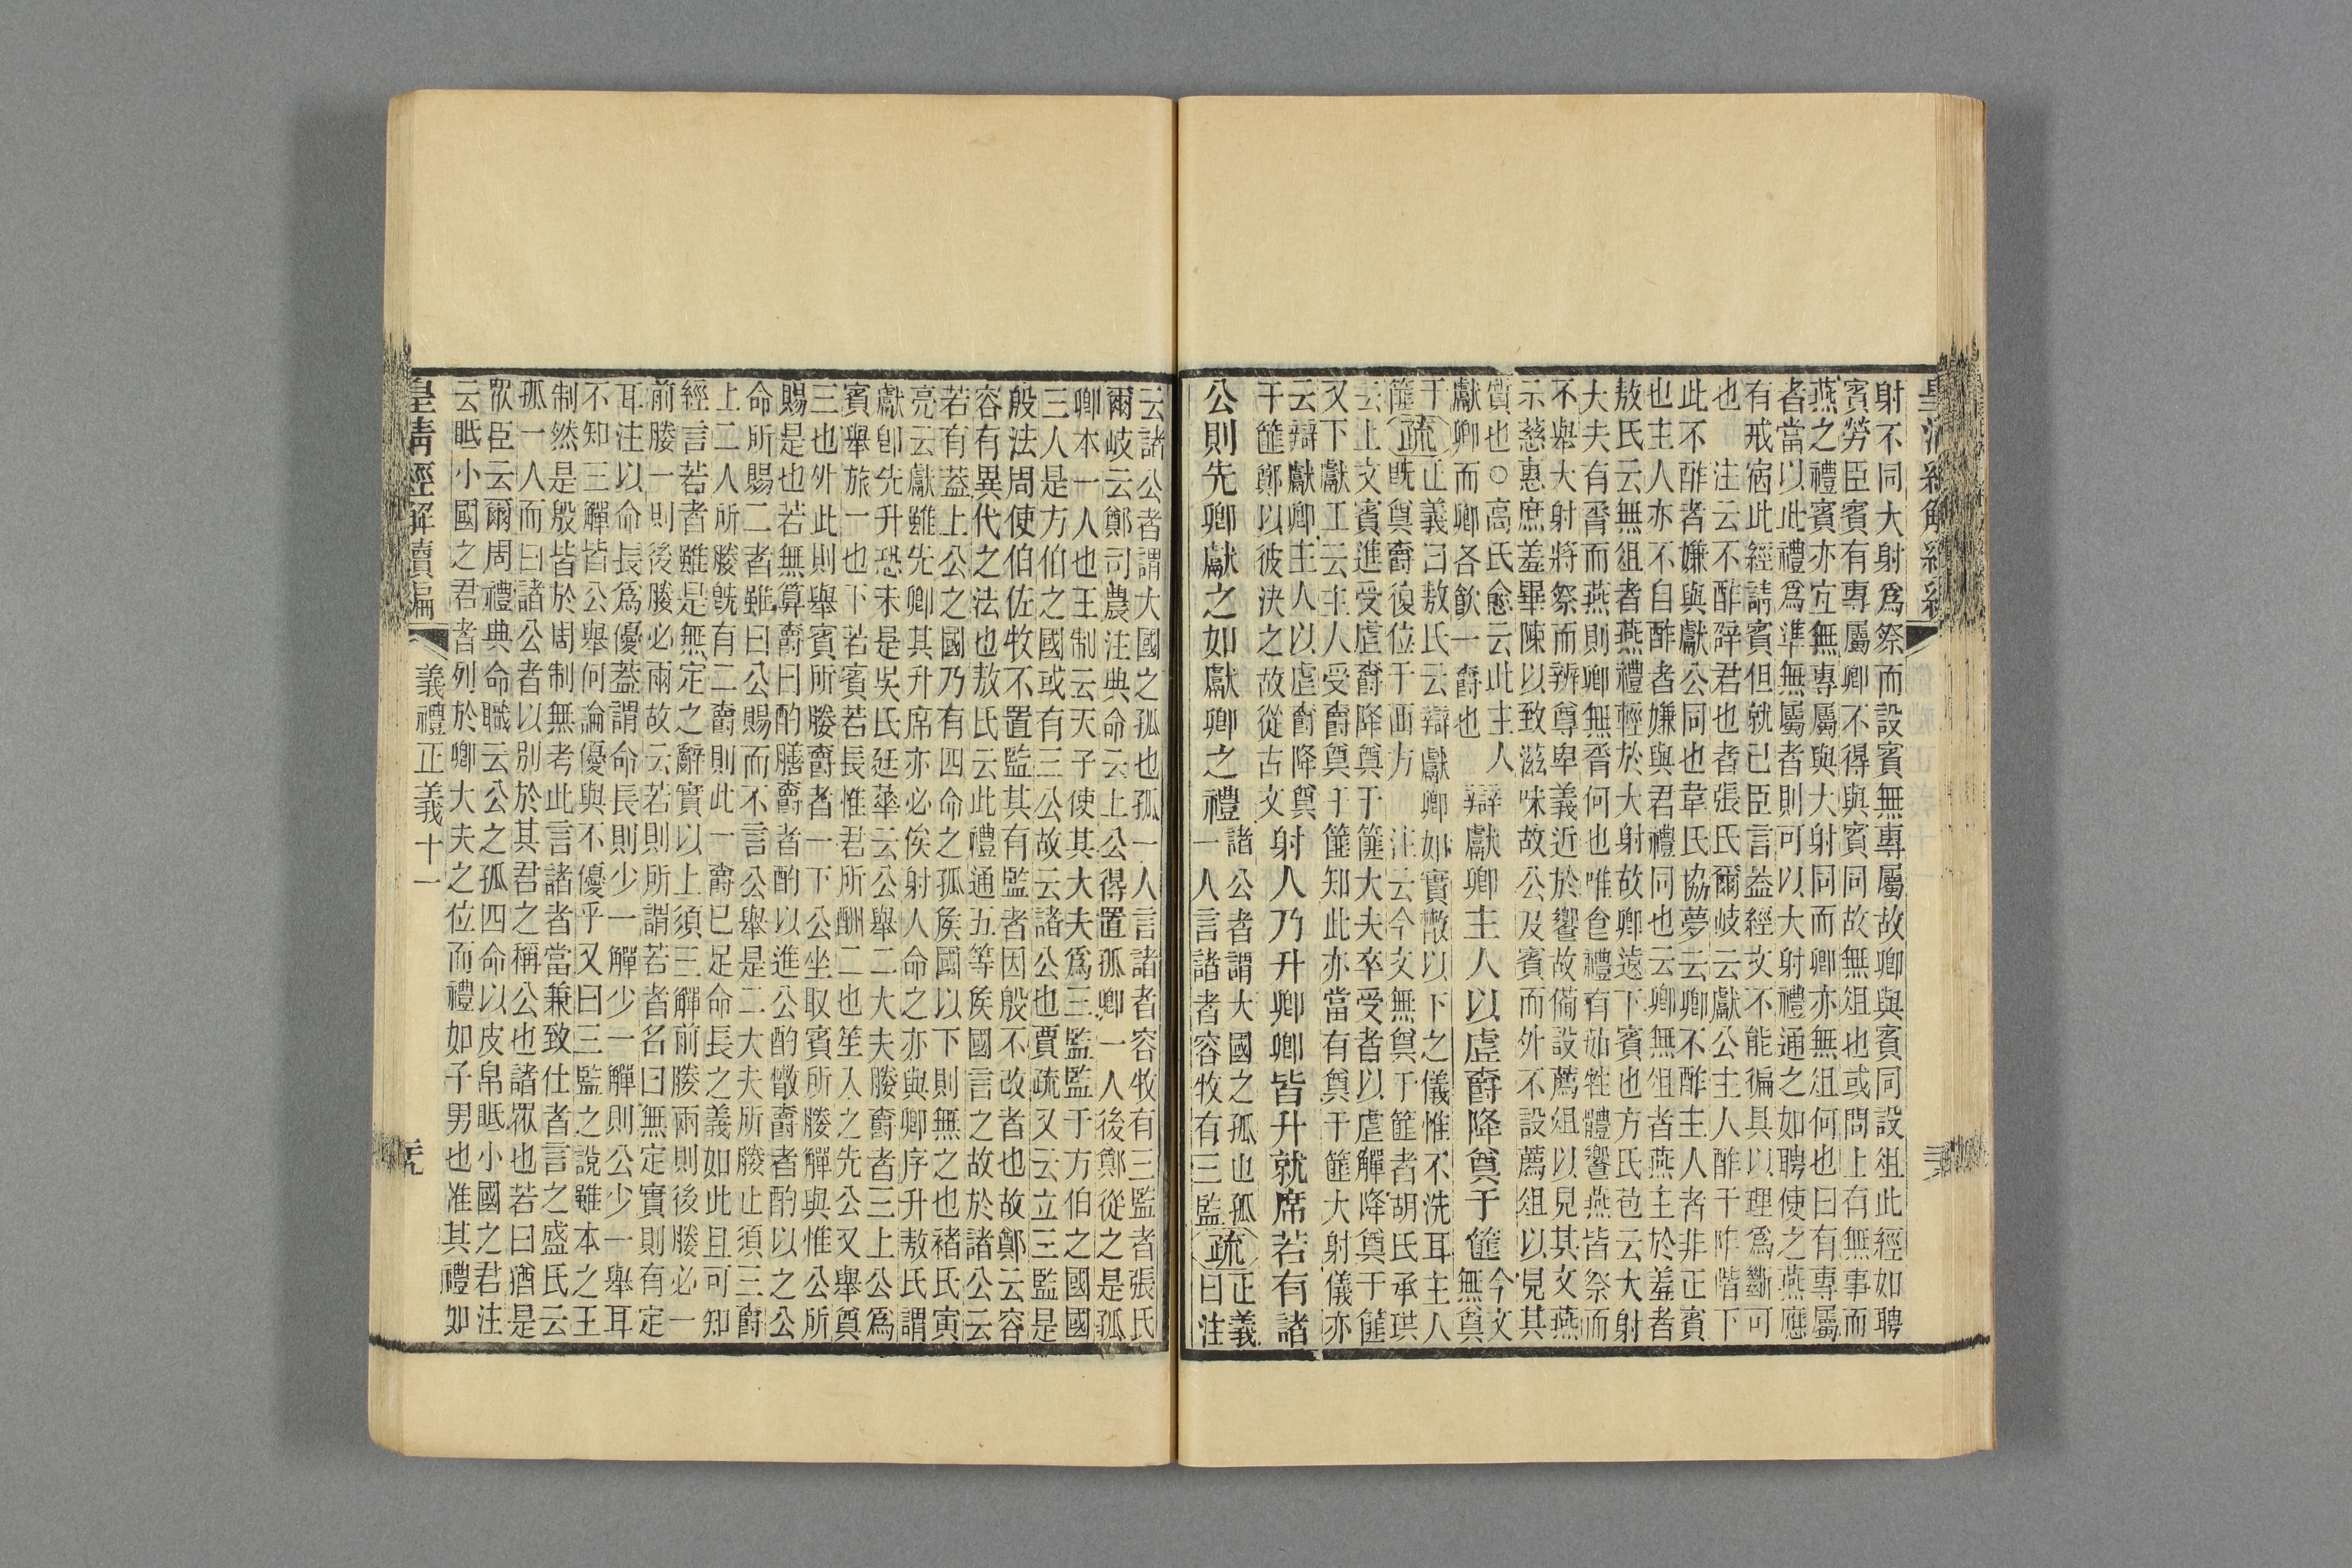 皇清經解續編
三
射不同大射爲祭而設賓無專屬故卿與賓同設俎此經如聘
賓勞臣賓有專屬卿不得與賓同故無俎也或問上有無事而
燕之禮賓亦宜無專屬與大射同而卿亦無俎何也曰有專屬
者當以此禮爲準無屬者則可以大射禮通之如聘使之燕應
有戒宿此經請賓但就已臣言葢經文不能徧具以理爲斷可
也　注云不酢辟君也者張氏爾岐云獻公主人酢于阼階下
此不酢者嫌與獻公同也韋氏協夢云卿不酢主人者非正賓
也主人亦不自酢者嫌與君禮同也云卿無俎者燕主於羞者
敖氏云無俎者燕禮輕於大射故卿遠下賓也方氏苞云大射
大夫有脀而燕則卿無脀何也唯食禮有牲體饗燕皆祭而
不舉大射將祭而辨尊卑義近於饗故備設薦俎以見其文燕
示慈惠庶羞畢陳以致滋味故公及賓而外不設薦俎以見其
質也○高氏愈云此主人
獻卿而卿各飲一爵也
辯獻卿主人以虛爵降奠于篚
今文
無奠
于
篚
疏
正義曰敖氏云辯獻卿如實散以下之儀惟不洗耳主人
旣奠爵復位于西方　注云今文無奠于篚者胡氏承珙
云上文賓進受虛爵降奠于篚大夫卒受者以虛觶降奠于篚
又下獻工云主人受爵奠于篚知此亦當有奠于篚大射儀亦
云辯獻卿主人以虛爵降奠
于篚鄭以彼決之故從古文
射人乃升卿卿皆升就席若有諸
公則先卿獻之如獻卿之禮
諸公者謂大國之孤也孤
一人言諸者容牧有三監
疏
正義
曰注
云諸公者謂大國之孤也孤一人言諸者容牧有三監者張氏
爾岐云鄭司農注典命云上公得置孤卿一人後鄭從之是孤
卿本一人也王制云天子使其大夫爲三監監于方伯之國國
三人是方伯之國或有三公故云諸公也賈疏又云立三監是
殷法周使伯佐牧不置監其有監者因殷不改者也故鄭云容
容有異代之法也敖氏云此禮通五等侯國言之故於諸公云
若有葢上公之國乃有四命之孤侯國以下則無之也褚氏寅
亮云獻雖先卿其升席亦必俟射人命之亦與卿序升敖氏謂
獻卽先升恐未是吳氏廷華云公舉二大夫媵爵者三上公爲
賓舉旅一也下若賓若長惟君所酬二也笙入之先公又舉奠
三也外此則舉賓所媵爵者一下公坐取賓所媵觶與惟公所
賜是也若無算爵曰酌膳爵者酌以進公酌散爵者酌以之公
命所賜二者雖曰公賜而不言公舉是二大夫所媵止須三爵
上二人所媵旣有二爵則此一爵已足命長之義如此且可知
經言若者雖是無定之辭實以上須三觶前媵兩則後媵必一
前媵一則後媵必兩故云若則所謂若者名曰無定實則有定
耳注以命長爲優葢謂命長則少一觶少一觶則公少一舉耳
不知三觶皆公舉何論優與不優乎又曰三監之說雖本之王
制然是殷皆於周制無考此言諸者當兼致仕者言之盛氏云
孤一人而曰諸公者以別於其君之稱公也諸眾也若曰猶是
眾臣云爾周禮典命職云公之孤四命以皮帛眡小國之君注
云眡小國之君者列於卿大夫之位而禮如子男也准其禮如
皇清經解續編
義禮正義十一